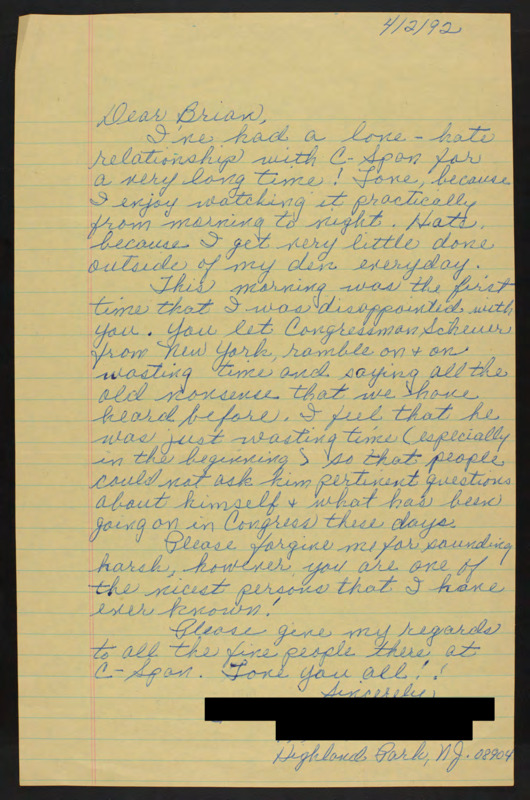 4/2/92
Dear Brian,
I've had a love-hate
relationship with C-Span for
a very long time! Love, because
I enjoy watching it practically
from morning to night. Hate,
because I get very little done
outside of my den everyday.
This morning was the first
time that I was disappointed with
you. You let Congressman Scheuer
from New York, ramble on & on
wasting time and saying all the
old nonsense that we have
heard before. I feel that he
was just wasting time (especially
in the beginning) so that people
could not ask him pertinent questions
about himself & what has been
going on in Congress these days.
Please forgive me for sounding
harsh, however you are one of
the nicest persons that I have
ever known!
Please give my regards
to all the fine people there at
C-Span. Love you all!!
Sincerely,
Highland Park, NJ. 08904